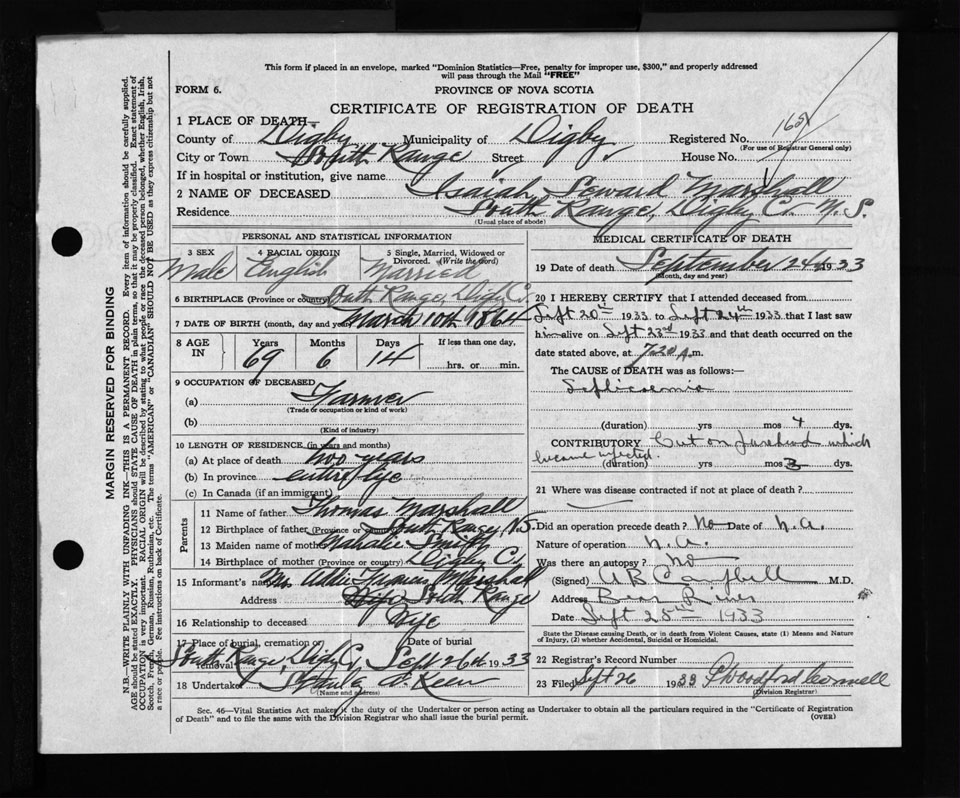 This form if placed in an envelope, marked "Dominion Statistics—Free, penalty for improper use, $300," and properly addressed
will pass through the Mail "FREE"
FORM 6.
PROVINCE OF NOVA SCOTIA
CERTIFICATE OF REGISTRATION OF DEATH
1 PLACE OF DEATH—
County of Digby Municipality of Digby Registered No.
(For use of Registrar General only)
City or Town South Range Street House No.
If in hospital or institution, give name
2 NAME OF DECEASED Isaiah Seward Marshall
Residence South Range, Digby Co. N.S.
(Usual place of abode)
PERSONAL AND STATISTICAL INFORMATION
3 SEX 4 RACIAL ORIGIN 5 Single, Married, Widowed or
Divorced. (Write the word)
Male English Married
6 BIRTHPLACE (Province or country) South Range, Digby Co.
7 DATE OF BIRTH (month, day and year) March 10th 1864
8 AGE IN Years Months Days If less than one day,
69 6 14 hrs. or min.
9 OCCUPATION OF DECEASED
(a) Farmer
(Trade or occupation or kind of work)
(b)
(Kind of industry)
10 LENGTH OF RESIDENCE (in years and months)
(a) At place of death two years
(b) In province entire life
(c) In Canada (if an immigrant)
Parents
11 Name of father Thomas Marshall
12 Birthplace of father (Province or country) South Range, N.S.
13 Maiden name of mother Smith
14 Birthplace of mother (Province or country) Digby Co.
15 Informant's name Mrs Marshall
Address South Range
16 Relationship to deceased
17 Place of burial, cremation or removal Date of burial
South Range, Digby Co., Sept 26th 1933
18 Undertaker
(Name and address)
MEDICAL CERTIFICATE OF DEATH
19 Date of death September 24th 1933
(Month, day and year)
20 I HEREBY CERTIFY that I attended deceased from
Sept 20th 1933 to Sept 24th 1933 that I last saw
him alive on Sept 23rd 1933 and that death occurred on
the date stated above, at 7.20 A.m.
The CAUSE of DEATH was as follows:—
Septicaemia
(duration) yrs mos 4 dys.
CONTRIBUTORY Cut on forehead which
became infected.
(duration) yrs mos 3 dys.
21 Where was disease contracted if not at place of death?
Did an operation precede death? No Date of N.A.
Nature of operation N.A.
Was there an autopsy? No
(Signed) A B Campbell M.D.
Address Bear River
Date Sept 25th 1933
State the Disease causing Death, or in death from Violent Causes, state (1) Means and Nature
of Injury, (2) whether Accidental, Suicidal or Homicidal.
22 Registrar's Record Number
23 Filed Sept 26 1933
(Division Registrar)
Sec. 46—Vital Statistics Act makes it the duty of the Undertaker or person acting as Undertaker to obtain all the particulars required in the "Certificate of Registration
of Death" and to file the same with the Division Registrar who shall issue the burial permit.
(OVER)
MARGIN RESERVED FOR BINDING
N.B.—WRITE PLAINLY WITH UNFADING INK—THIS IS A PERMANENT RECORD. Every item of information should be carefully supplied.
AGE should be stated EXACTLY. PHYSICIANS should STATE CAUSE OF DEATH in plain terms, so that it may be properly classified. Exact statement of
OCCUPATION is very important. RACIAL ORIGIN will be described by stating to what people or race the deceased person belonged, whether English, Irish,
Scotch, French, German, Russian, Ruthenian, etc. The terms "AMERICAN" or "CANADIAN" SHOULD NOT BE USED as they express citizenship but not
a race or people. See instructions on back of Certificate.